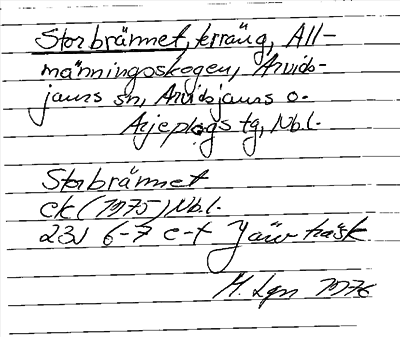 Storbrännet, terräng, All-
männingsskogen, Arvids-
jaurs sn, Arvidsjaurs o.
Arjeplogs tg, Nb.l.
Storbrännet
ek (1975) Nb.l.
23J 6-7 e-f Järvträsk
M. Lgn 1976